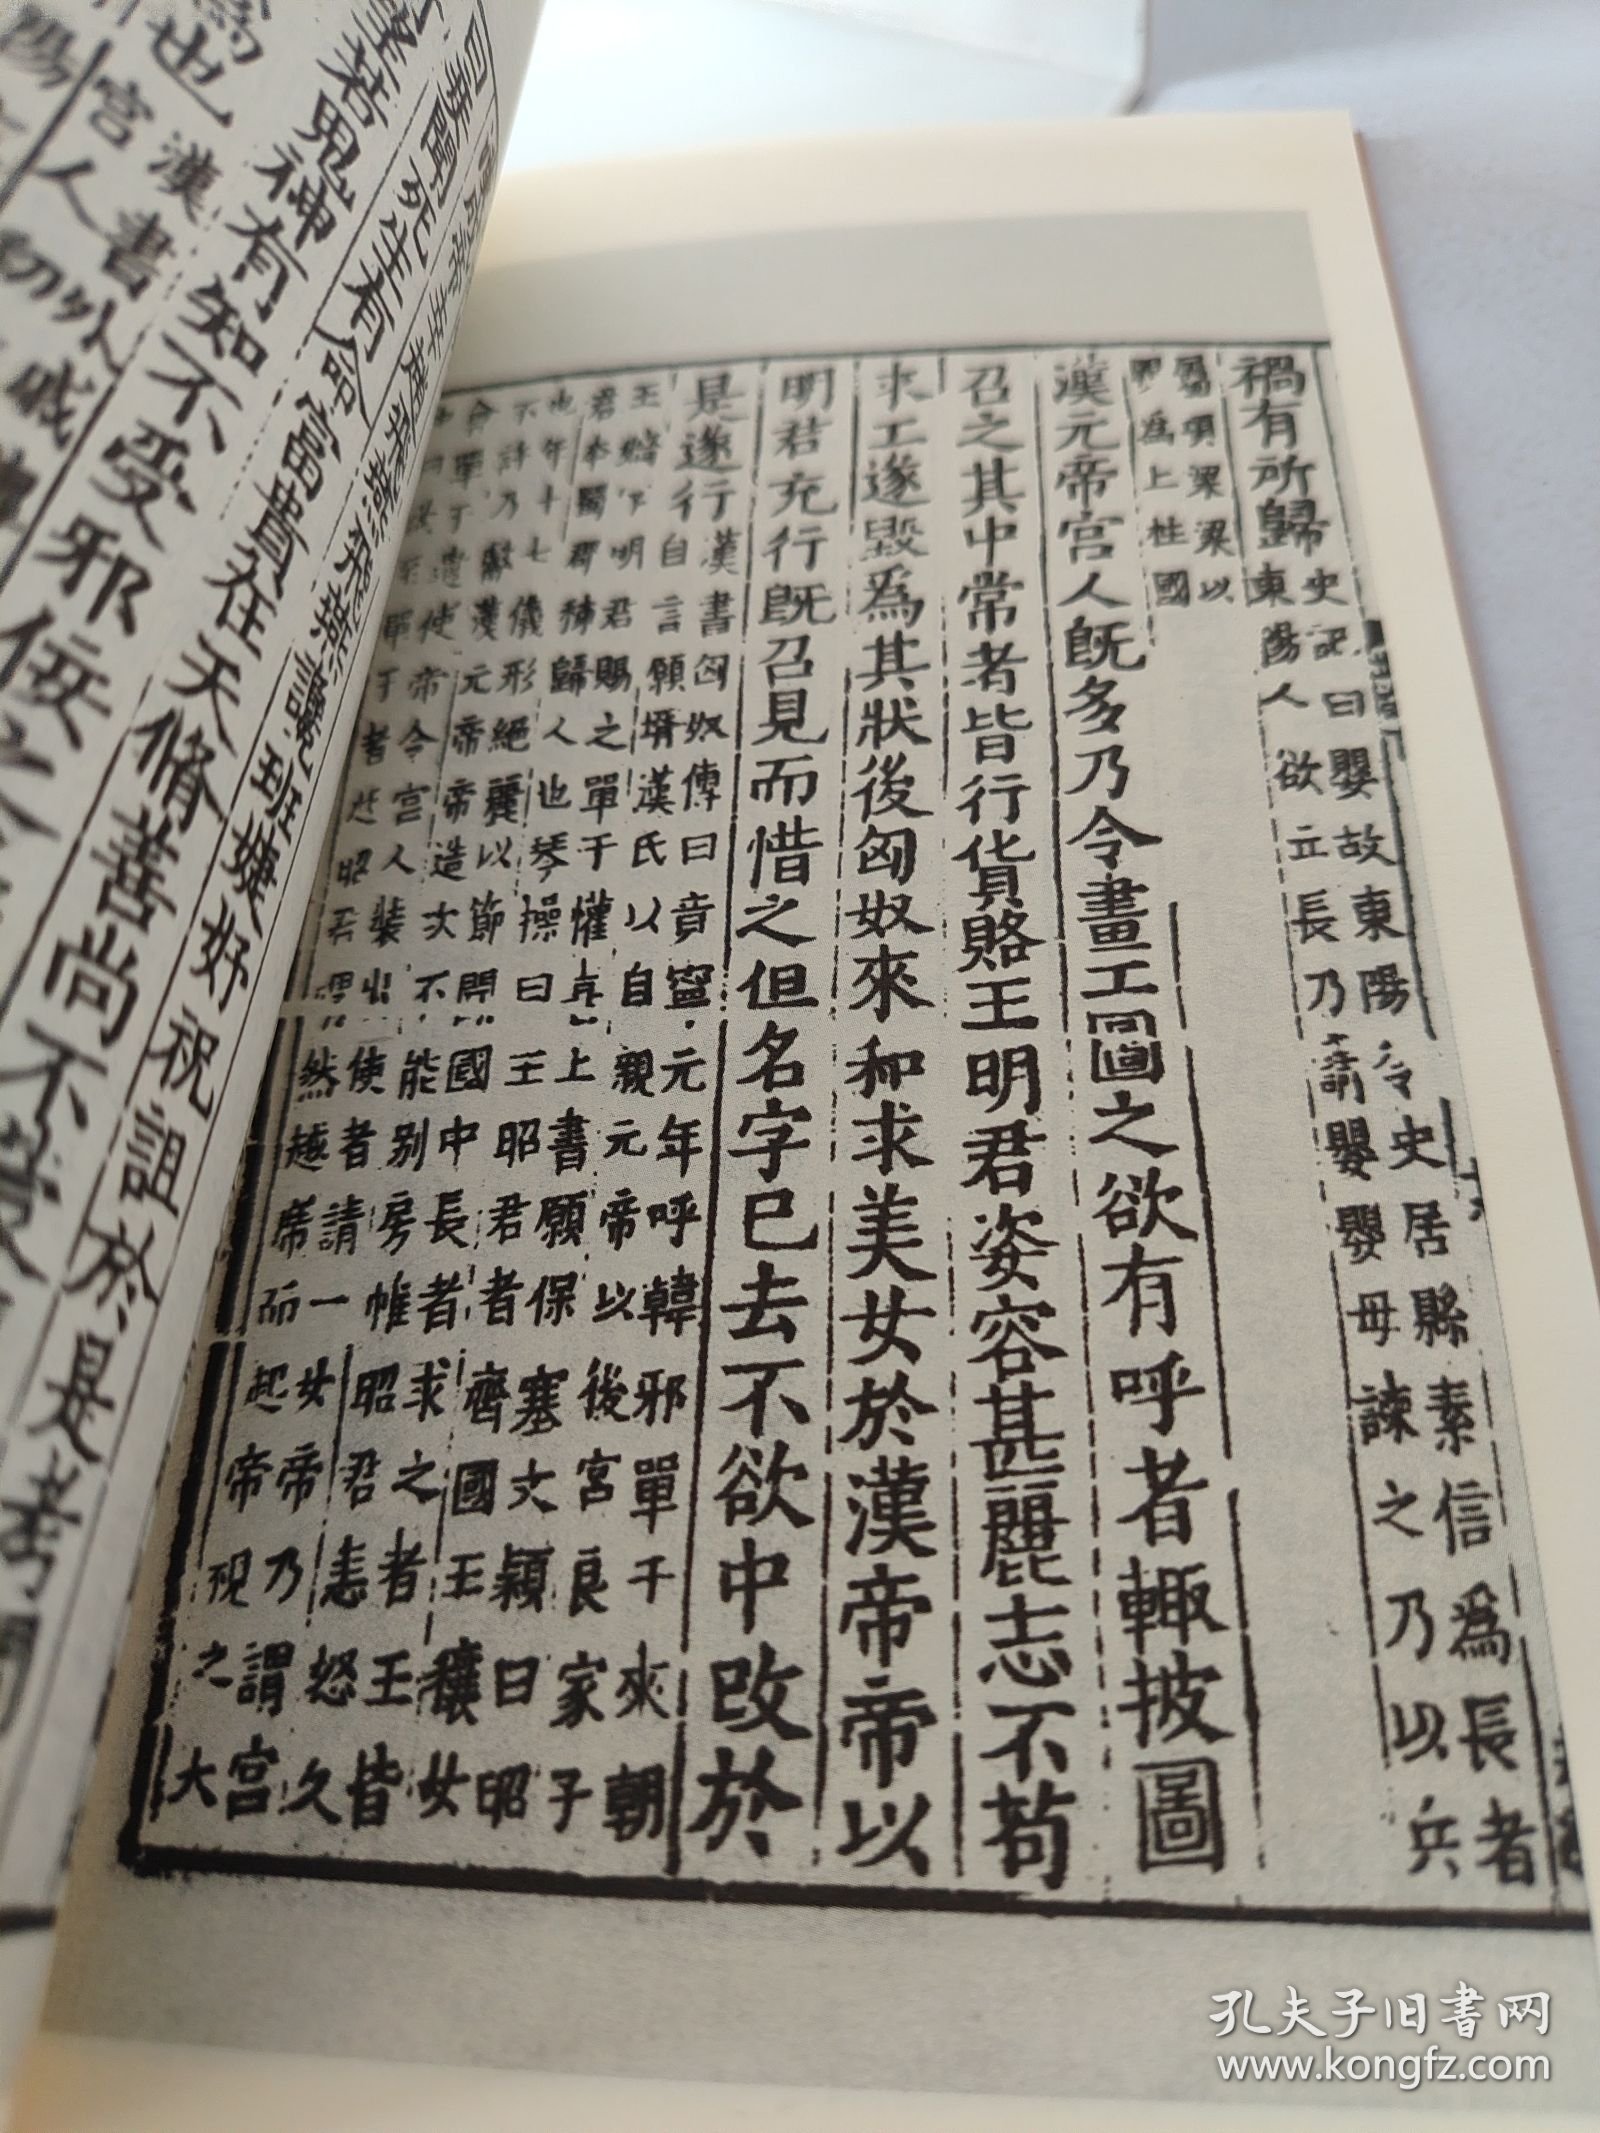 禍有所歸
史記曰嬰故東陽令史居縣素信爲長者
東陽人欲立長乃請嬰嬰母諫之乃以兵
屬項梁梁以
爲上柱國
漢元帝宮人既多乃令畫工圖之欲有呼者輙披圖
召之其中常者皆行貨賂王明君姿容甚麗志不苟
求工遂毀爲其狀後匈奴來和求美女於漢帝帝以
明君充行既召見而惜之但名字已去不欲中改於
是遂行
漢書匈奴傳曰竟寧元年呼韓邪單于來朝
自言願壻漢氏以自親元帝以後宮良家子
王嬙下明君賜之單于懽喜上書願保塞文穎曰昭
君本蜀郡秭歸人也琴操曰王昭君者齊國王穰女
也年十七儀形絕麗以節聞國中長者求之者王皆
不許乃獻漢元帝帝造次不能別房帷昭君恚怒久
會單于遣使帝令宮人裝出使者請一女帝乃謂宮
單于者起昭君喟然越席而起帝視之大
帝幸趙飛燕飛燕讒班婕妤祝詛於是考問
曰妾聞死生有命富貴在天脩善尚不蒙
若鬼神有知不受邪佞之
爲也
漢書外戚
宮人
孔夫子旧书网
www.kongfz.com